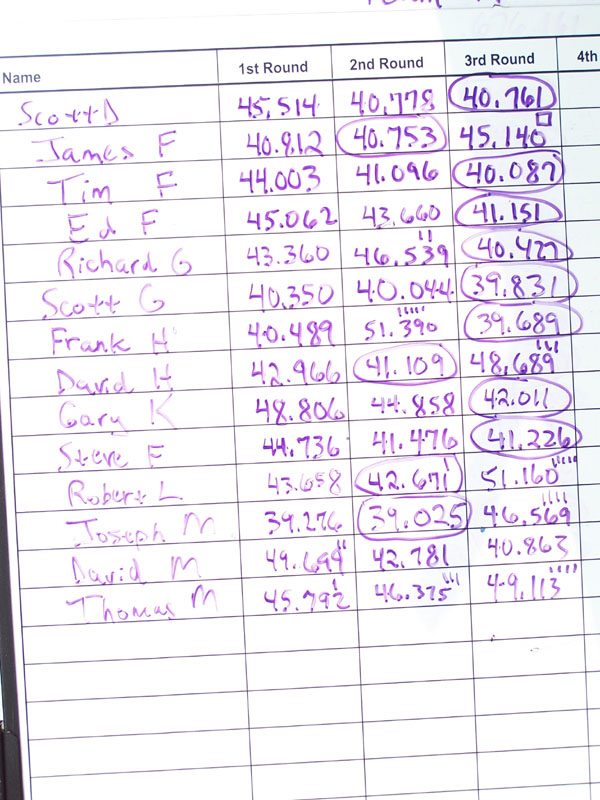 Name 1st Round 2nd Round 3rd Round 4th
Scott D 45.514 40.778 40.761
James F 40.812 40.753 45.140
Tim F 44.003 41.096 40.087
Ed F 45.062 43.660 41.151
Richard G 43.360 46.539 40.427
Scott G 40.350 40.044 39.831
Frank H 40.489 51.390 39.689
David H 42.966 41.109 48.689
Gary K 48.806 44.858 42.011
Steve F 44.736 41.476 41.226
Robert L. 43.658 42.671 51.160
Joseph M 39.276 39.025 46.569
David M 49.699 42.781 40.863
Thomas M 45.792 46.375 49.113